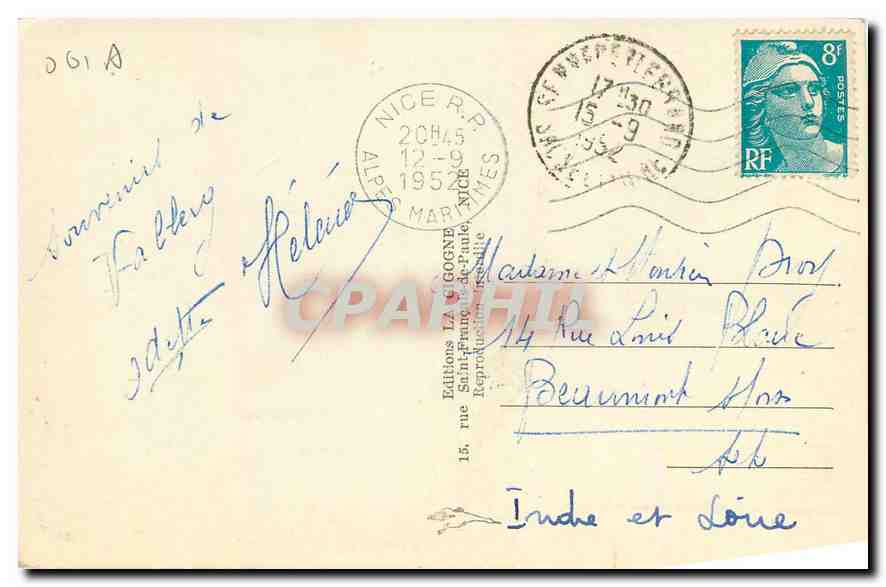 061 A
Souvenir de
Valberg
Odette Hélène
NICE R.P.
20H45
12-9
1952
ALPES MARITIMES
17H30
15-9
1952
8F
POSTES
RF
Editions LA CIGOGNE
15, rue Saint-François-de-Paule, NICE
Reproduction interdite
CPAPHIL
Madame et Monsieur
14 Rue Louis
Beaumont
Indre et Loire